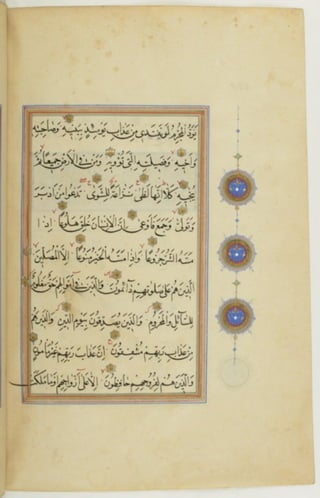 يَوَدُّ الْمُجْرِمُ لَوْ يَفْتَدِى مِنْ عَذَابِ يَوْمِئِذٍ بِبَنِيهِ وَصَاحِبَتِهِ
وَاَخِيهِ وَفَصِيلَتِهِ الَّتِى تُؤْوِيهِ وَمَنْ فِى الْاَرْضِ جَمِيعًا ثُمَّ
يُنْجِيهِ كَلَّا اِنَّهَا لَظَى نَزَّاعَةً لِلشَّوَى تَدْعُوا مَنْ اَدْبَرَ
وَتَوَلَّى وَجَمَعَ فَاَوْعَى اِنَّ الْاِنْسَانَ خُلِقَ هَلُوعًا اِذَا
مَسَّهُ الشَّرُّ جَزُوعًا وَاِذَا مَسَّهُ الْخَيْرُ مَنُوعًا اِلَّا الْمُصَلِّينَ
الَّذِينَ هُمْ عَلَى صَلٰوتِهِمْ دَآئِمُونَ وَالَّذِينَ فِى اَمْوَالِهِمْ حَقٌّ مَعْلُومٌ
لِلسَّآئِلِ وَالْمَحْرُومِ وَالَّذِينَ يُصَدِّقُونَ بِيَوْمِ الدِّينِ وَالَّذِينَ هُمْ
مِنْ عَذَابِ رَبِّهِمْ مُشْفِقُونَ اِنَّ عَذَابَ رَبِّهِمْ غَيْرُ مَاْمُونٍ
وَالَّذِينَ هُمْ لِفُرُوجِهِمْ حَافِظُونَ اِلَّا عَلَى اَزْوَاجِهِمْ اَوْ مَا مَلَكَتْ